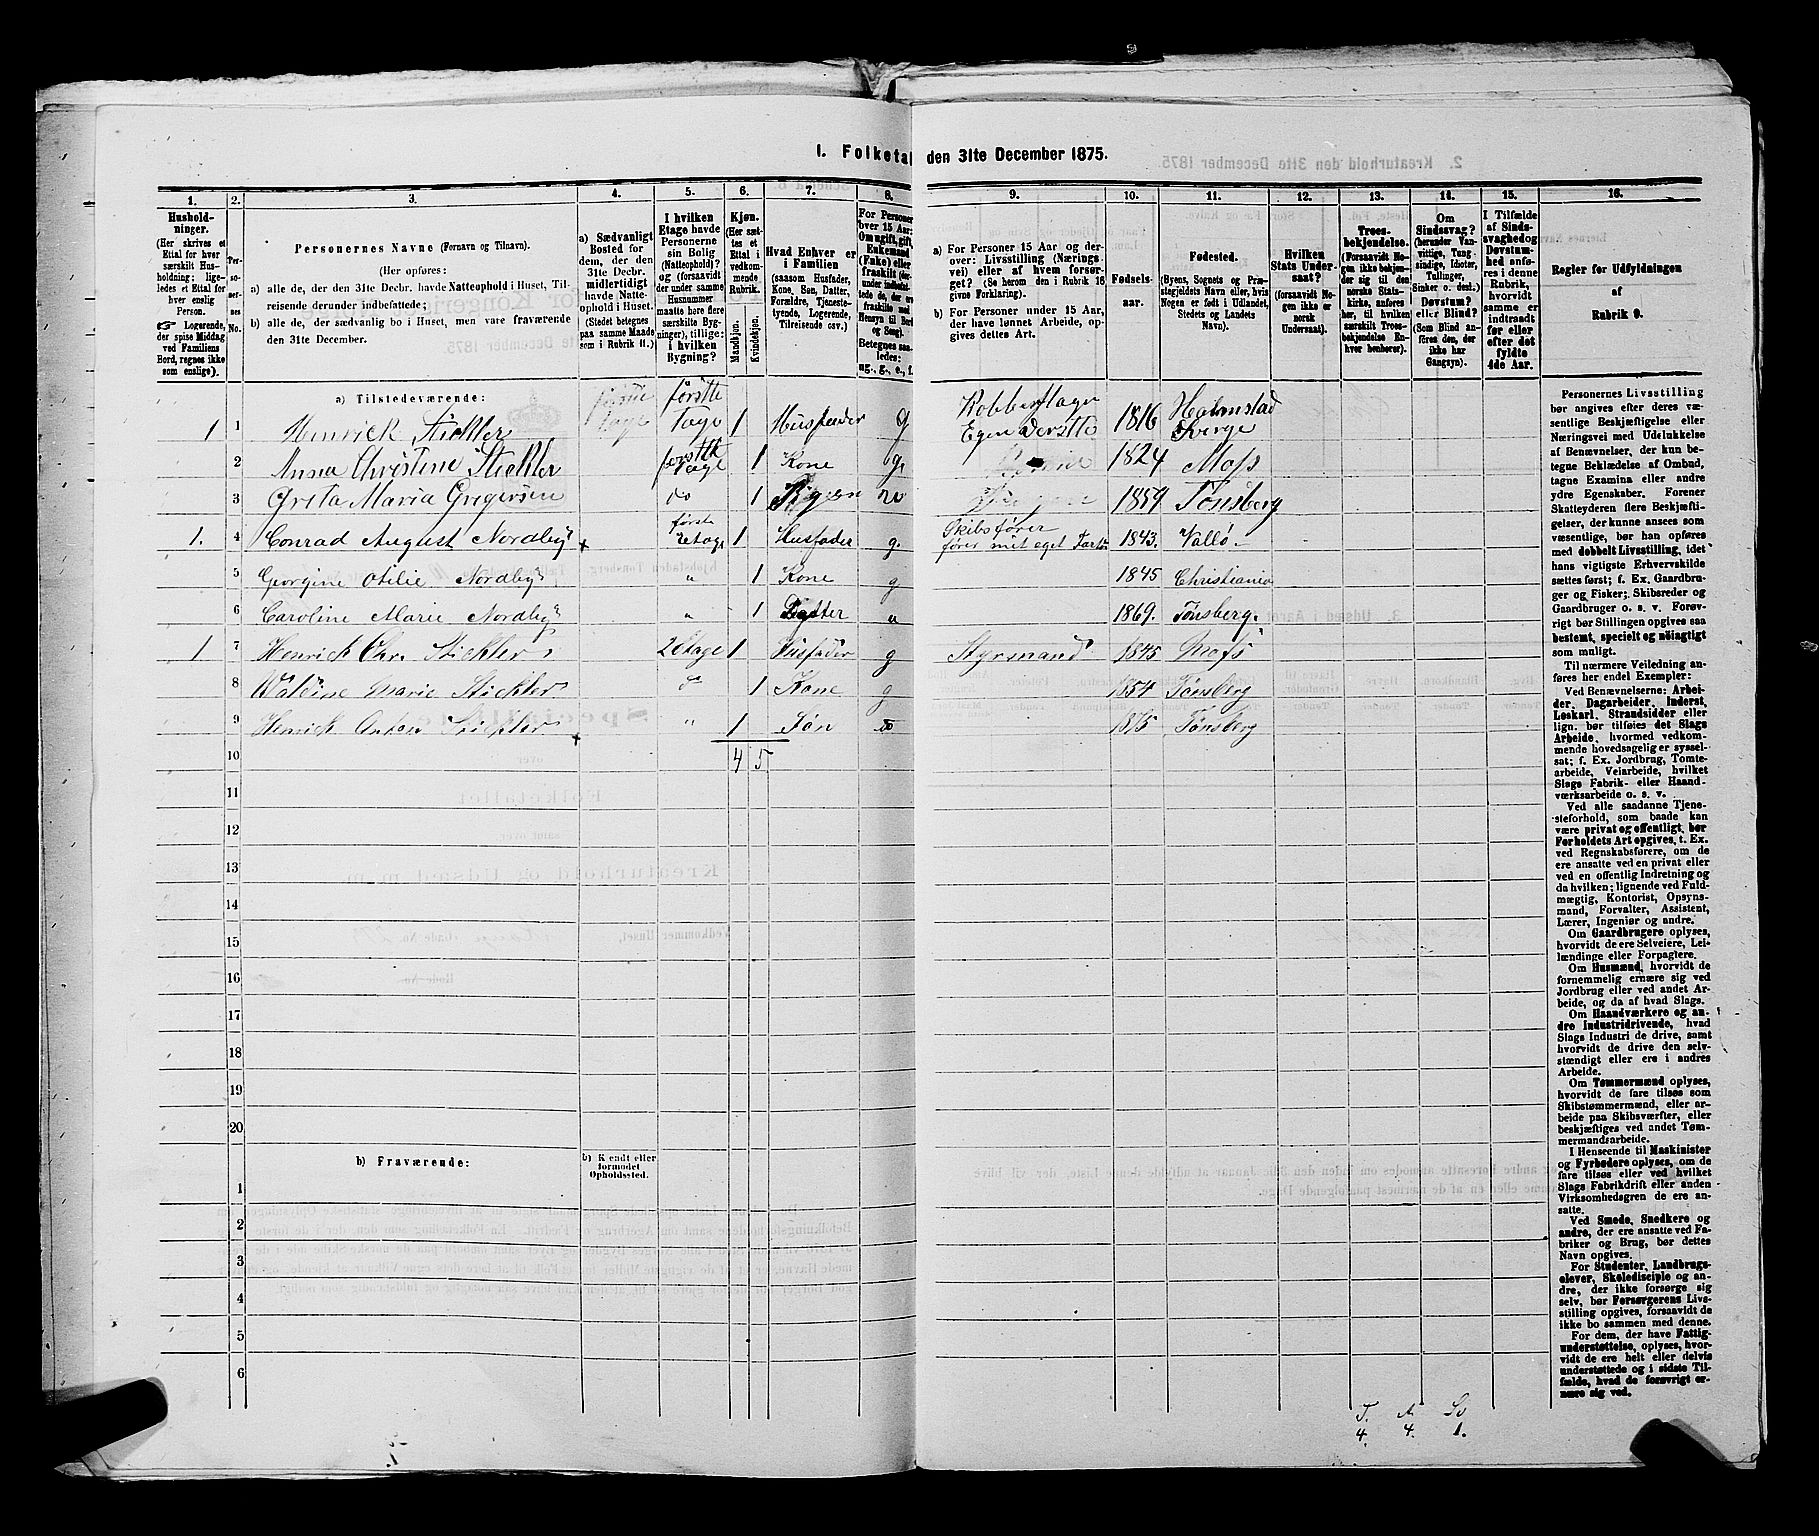 1. Folketal den 31te December 1875.
1. 2. 3. 4. 5. 6. 7. 8. 9. 10. 11. 12. 13. 14. 15. 16.
Hushold-
ninger.
(Her skrives et
Ettal for hver
særskilt Hus-
holdning; lige-
ledes et Ettal for
hver enslig
Person.
☞ Logerende,
der spise Middag
ved Familiens
Bord, regnes ikke
som enslige).
Per-
so-
ner-
nes
No.
Personernes Navne (Fornavn og Tilnavn).
(Her opføres:
a) alle de, der den 31te Decbr. havde Natteophold i Huset, Til-
reisende derunder indbefattede;
b) alle de, der sædvanlig bo i Huset, men vare fraværende
den 31te December.
a) Sædvanligt
Bosted for
dem, der den
31te Decbr.
midlertidigt
havde Natte-
ophold i Huset.
(Stedet betegnes
paa samme Maade
som i Rubrik 11.)
I hvilken
Etage havde
Personerne
sin Bolig
(Natteophold)?
(forsaavidt
der under samme
Husnummer
maatte høre flere
særskilte Byg-
ninger), tillige:
i hvilken
Bygning?
Kjøn.
(Her sæt-
tes et
Ettal i
vedkom-
mende
Rubrik.
Mandkjøn.
Kvindekjøn.
Hvad Enhver er
i Familien
(saasom Husfader,
Kone, Søn, Datter,
Forældre, Tjeneste-
tyende, Logerende,
Tilreisende osv.)
For Personer
over 15 Aar:
Om ugift, gift,
Enkemand
(Enke) eller
fraskilt
Betegnes saa-
ledes:
ug., g., e., f.
a) For Personer 15 Aar og der-
over: Livsstilling (Nærings-
vei) eller af hvem forsør-
get? (Se herom den i Rubrik 16
givne Forklaring).
b) For Personer under 15 Aar,
der have lønnet Arbeide, op-
gives dettes Art.
Fødsels-
aar.
Fødested.
(Byens, Sognets og Præ-
stegjeldets Navn eller, hvis
Nogen er født i Udlandet,
Stedets og Landets
Navn).
Hvilken
Stats Under-
saat?
(forsaavidt No-
gen ikke er
norsk
Undersaat).
Troes-
bekjendelse.
(Forsaavidt No-
gen ikke bekjen-
der sig til den
norske Stats-
kirke, anføres
her, til hvilken
særskilt Troes-
bekjendelse En-
hver henhører).
Om
Sindssvag?
(herunder Van-
vittige, Tung-
sindige, Idioter,
Tullinger,
Sinker o. desl.)
Døvstum?
eller Blind?
(Som Blind an-
føres den, der
ikke har
Gangsyn).
I Tilfælde
af Sinds-
svaghed og
Døvstum-
hed anfø-
res i denne
Rubrik,
hvorvidt
samme er
indtraadt
før eller
efter det
fyldte
4de Aar.
Regler for Udfyldningen
af
Rubrik 9.
a) Tilstedeværende:
1 1 Henrick Stickler førstte Tage 1 Husfader g Kobberslager Egen Versttto 1816 Halmstad Sverge
2 Anna Christine Stickler førstte Tage 1 Kone g. 1824 Moss
3 Greta Maria Gregersen do 1 Pigen 1859 Tønsberg
1. 4 Conrad August Nordby første Etage 1 Husfader g. Skibsfører fører mit eget Fartøi 1843. Vallø
5 Georgine Otilie Nordby " 1 Kone g 1845 Christiania
6 Caroline Marie Nordby " 1 Datter u 1869. Tønsberg.
1 7 Henrick Chr. Stickler 2 Etage 1 Husfader g Styrmand 1845 Moss
8 Valeine Marie Stickler do 1 Kone g 1854 Tønsberg
9 Henrick Anton Stickler " 1 Søn 1875 Tønsberg
10 4 5
11
12
13
14
15
16
17
18
19
20
b) Fraværende:
b) Kjendt eller
formodet
Opholdssted.
1
2
3
4
5
6
Personernes Livsstilling
bør angives efter deres væ-
sentlige Beskjæftigelse eller
Næringsvei med Udelukkelse
af Benævnelser, der kun be-
tegne Beklædelse af Ombud,
tagne Examina eller andre
ydre Egenskaber. Forener
Skatteyderen flere Beskjæfti-
gelser, der kunne ansees som
væsentlige, bør han opføres
med dobbelt Livsstilling, idet
hans vigtigste Erhvervskilde
sættes først; f. Ex. Gaardbru-
ger og Fisker; Skibsreder og
Gaardbruger o. s. v. Forøv-
rigt bør Stillingen opgives saa
bestemt, specielt og nøiagtigt
som muligt.
Til nærmere Veiledning an-
føres her endel Exempler:
Ved Benævnelserne: Arbei-
der, Dagarbeider, Inderst,
Løskarl, Strandsidder eller
lign. bør tilføies det Slags
Arbeide, hvormed vedkom-
mende hovedsagelig er syssel-
sat; f. Ex. Jordbrug, Tomte-
arbeide, Veiarbeide, hvilket
Slags Fabrik- eller Haand-
værksarbeide o. s. v.
Ved alle saadanne Tjene-
steforhold, som baade kan
være privat og offentligt, bør
Forholdets Art opgives, t. Ex.
ved Regnskabsførere, om de
ere ansatte ved en privat eller
ved en offentlig Indretning og
da hvilken; lignende ved Fuld-
mægtig, Kontorist, Opsyns-
mand, Forvalter, Assistent,
Lærer, Ingeniør og andre.
Om Gaardbrugere oplyses,
hvorvidt de ere Selveiere, Lei-
lændinge eller Forpagtere.
Om Husmænd, hvorvidt de
fornemmelig ernære sig ved
Jordbrug eller ved andet Ar-
beide, og da af hvad Slags.
Om Haandværkere og an-
dre Industridrivende, hvad
Slags Industri de drive, samt
hvorvidt de drive den selv-
stændigt eller ere i andres
Arbeide.
Om Tømmermænd oplyses,
hvorvidt de fare tilsøs som
Skibstømmermænd, eller ar-
beide paa Skibsværfter, eller
beskjæftiges ved andet Tøm-
mermandsarbeide.
I Henseende til Maskinister
og Fyrbødere oplyses, om de
fare tilsøs eller ved hvilket
Slags Fabrikdrift eller anden
Virksomhedsgren de ere an-
satte.
Ved Smede, Snedkere og
andre, der ere ansatte ved Fa-
briker og Brug, bør dettes
Navn opgives.
For Studenter, Landbrugs-
elever, Skoledisciple og an-
dre, der ikke forsørge sig
selv, bør Forsørgerens Livs-
stilling opgives, forsaavidt de
ikke bo sammen med denne.
For dem, der have Fattig-
understøttelse, oplyses, hvor-
vidt de ere helt eller delvis
understøttede og i sidste Til-
fælde, hvad de forøvrigt er-
nære sig ved.
T. A. Sv
4. 4. 1.